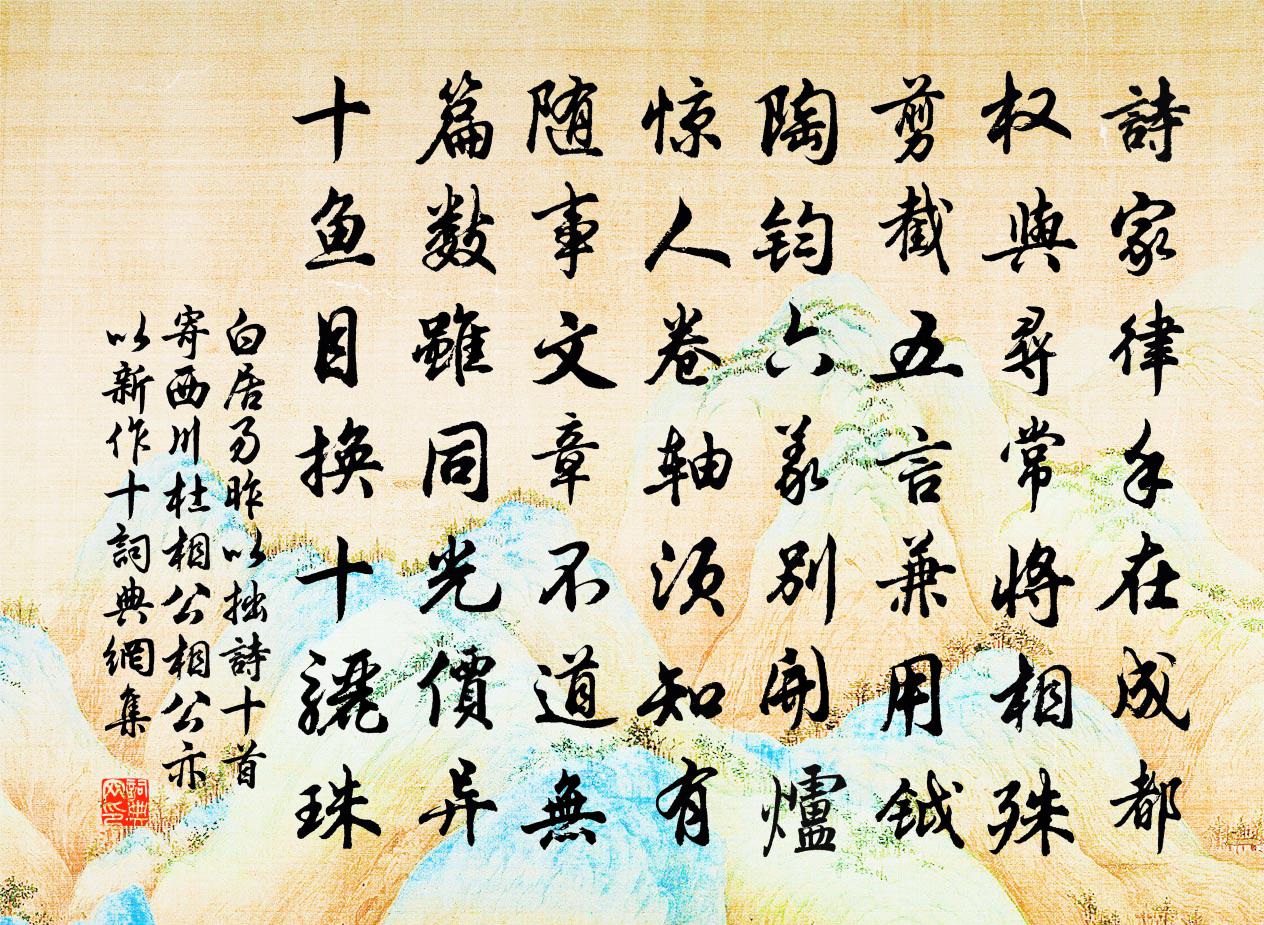 詩家律手在成都
权與尋常將相殊
剪截五言兼用钺
陶钧六義别開爐
惊人卷軸須知有
随事文章不道無
篇數雖同光價异
十鱼目換十驪珠
白居易昨以拙詩十首
寄西川杜相公相公亦
以新作十詞典網集
詞典网印